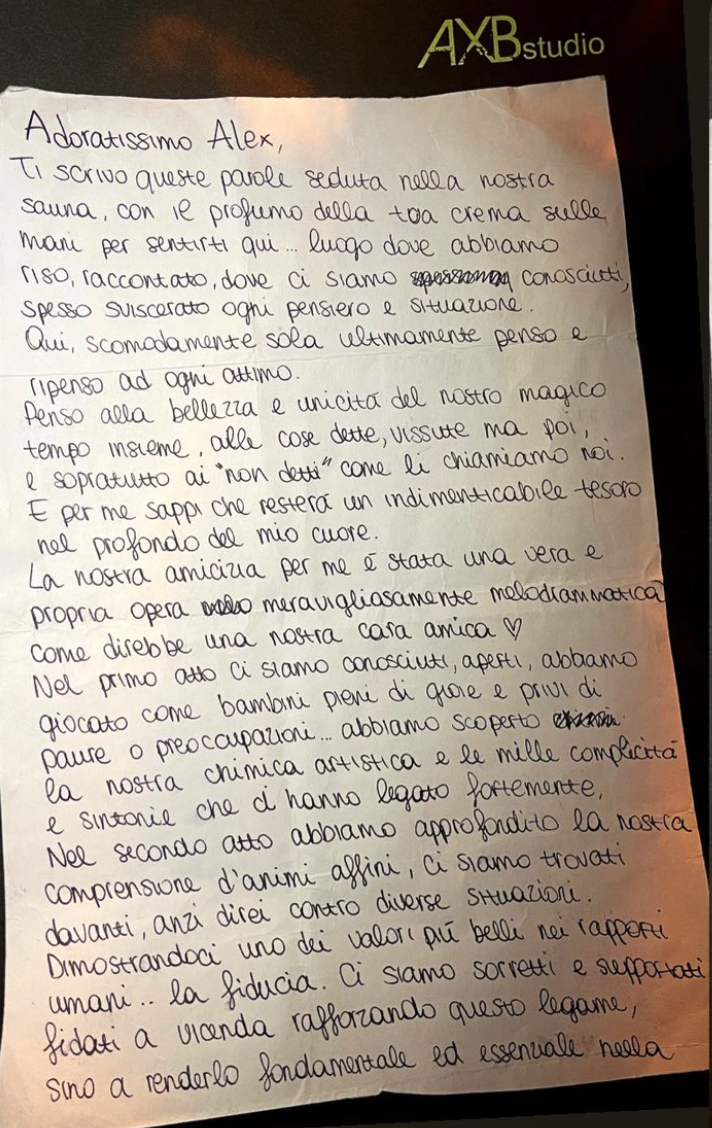 AXBstudio
Adoratissimo Alex,
Ti scrivo queste parole seduta nella nostra
sauna, con il profumo della tua crema sulle
mani per sentirti qui... luogo dove abbiamo
riso, raccontato, dove ci siamo conosciuti,
spesso sviscerato ogni pensiero e situazione.
Qui, scomodamente sola ultimamente penso e
ripenso ad ogni attimo.
Penso alla bellezza e unicità del nostro magico
tempo insieme, alle cose dette, vissute ma poi,
e sopratutto ai "non detti" come li chiamiamo noi.
E per me sappi che resterà un indimenticabile tesoro
nel profondo del mio cuore.
La nostra amicizia per me è stata una vera e
propria opera meravigliosamente melodrammatica
come direbbe una nostra cara amica ♡
Nel primo atto ci siamo conosciuti, aperti, abbiamo
giocato come bambini pieni di gioie e privi di
paure o preoccupazioni... abbiamo scoperto
la nostra chimica artistica e le mille complicità
e sintonie che ci hanno legato fortemente,
Nel secondo atto abbiamo approfondito la nostra
comprensione d'animi affini, ci siamo trovati
davanti, anzi direi contro diverse situazioni.
Dimostrandoci uno dei valori più belli nei rapporti
umani.. la fiducia. Ci siamo sorretti e supportati
fidati a vicenda rafforzando questo legame,
sino a renderlo fondamentale ed essenziale nella